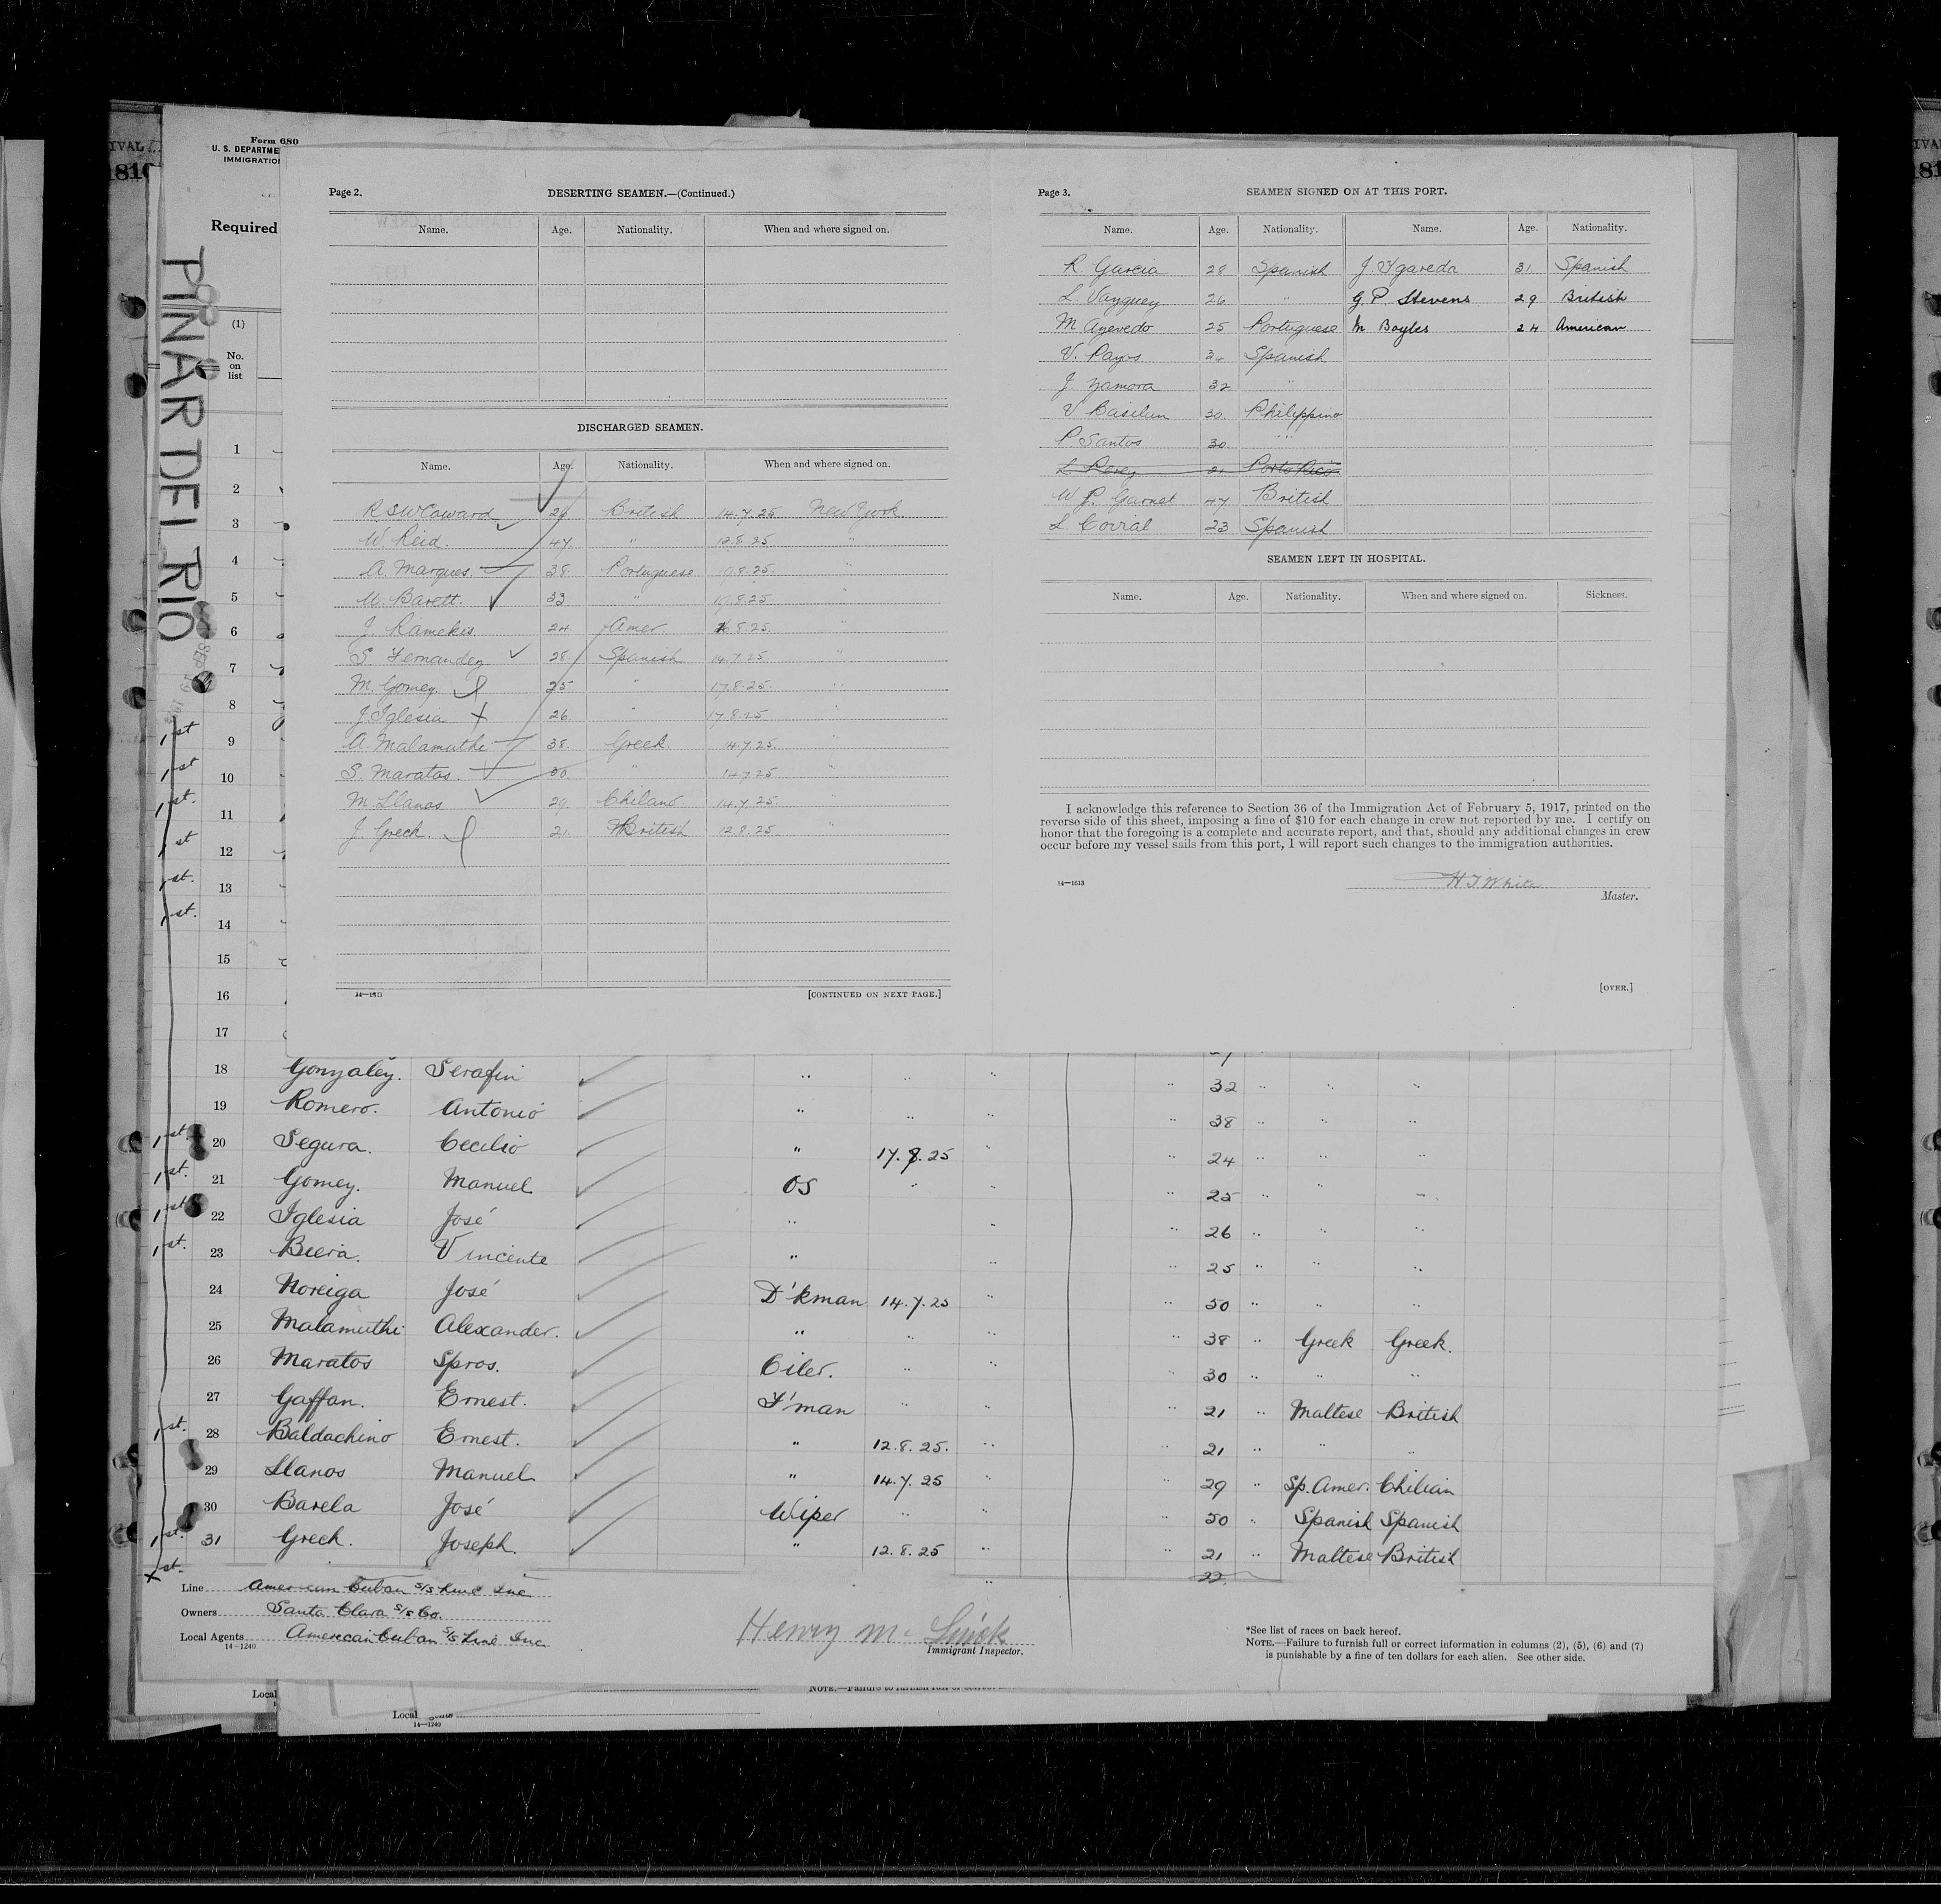 Form 680
U. S. DEPARTME
IMMIGRATIO
Required
PINAR DEL RIO
(1)
No.
on
list
Page 2.
DESERTING SEAMEN.—(Continued.)
Name. Age. Nationality. When and where signed on.
DISCHARGED SEAMEN.
Name. Age. Nationality. When and where signed on.
R. S. W. Coward 26 British 14.7.25 New York
W. Reid. 47 " 12.8.25 "
A. Marques. 38. Portuguese 19.8.25. "
M. Barett. 33 " 19.8.25. "
J. Ramekis. 24 Amer. 8.25 "
S Fernandez 28 Spanish 14.7.25. "
M. Gomez. 25 " 17.8.25. "
J. Iglesia 26 " 17.8.25 "
A. Malamuthi 38. Greek. 14.7.25. "
S. Maratos. 30 " 14.7.25 "
M. Llanos 29. Chilano. 14.7.25. "
J. Grech. 21. British 12.8.25 "
14—1613
[CONTINUED ON NEXT PAGE.]
Page 3.
SEAMEN SIGNED ON AT THIS PORT.
Name. Age. Nationality. Name. Age. Nationality.
R Garcia 28 Spanish J. Igareda 31 Spanish
L. Vazquez 26 " G. P. Stevens 29 British
M Azevedo 25 Portuguese M Boyles 24 American
V. Payos Spanish
J. Zamora 32 "
V Basilan 30. Philippino
P Santos 30 " "
L. Perez Porto Rico
W P. Garnet 47 British
L. Corral 23 Spanish
SEAMEN LEFT IN HOSPITAL.
Name. Age. Nationality. When and where signed on. Sickness.
I acknowledge this reference to Section 36 of the Immigration Act of February 5, 1917, printed on the
reverse side of this sheet, imposing a fine of $10 for each change in crew not reported by me. I certify on
honor that the foregoing is a complete and accurate report, and that, should any additional changes in crew
occur before my vessel sails from this port, I will report such changes to the immigration authorities.
14—1613
H J White
Master.
[OVER.]
1
2
3
4
5
6
7
8
1st 9
1st 10
1st. 11
1st 12
1st. 13
1st. 14
15
16
17
18 Gonzalez. Serafin " " " " 32 " " "
19 Romero. Antonio " " " " 38 " " "
1st. 20 Segura. Cecilio " 17.8.25 " " 24 " " "
1st. 21 Gomez. Manuel OS " " " 25 " " "
1st 22 Iglesia José " " " 26 " " "
1st. 23 Beera. Vincente " 25 " " "
24 Noreiga José D'kman 14.7.25 " " 50 " " "
25 Malamuthi Alexander. " " " " 38 " Greek Greek.
26 Maratos Spros. Oiler. " " " 30 " " "
27 Gaffan. Ernest. F'man " " " 21 " Maltese British
1st. 28 Baldachino Ernest. " 12.8.25. " " 21 " " "
29 Llanos Manuel " 14.7.25 " " 29 " Sp. Amer. Chilian
30 Barela José Wiper " " " 50 " Spanish Spanish
1st. 31 Grech. Joseph. " 12.8.25 " " 21 " Maltese British
1st. 22
Line American Cuban S/S Line Inc
Owners Santa Clara S/S Co.
Local Agents American Cuban S/S Line Inc
14—1240
Immigrant Inspector.
*See list of races on back hereof.
NOTE.—Failure to furnish full or correct information in columns (2), (5), (6) and (7)
is punishable by a fine of ten dollars for each alien. See other side.
Local
Local
14—1240